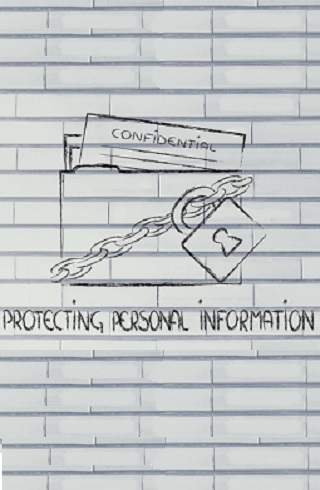 CONFIDENTIAL
PROTECTING PERSONAL INFORMATION